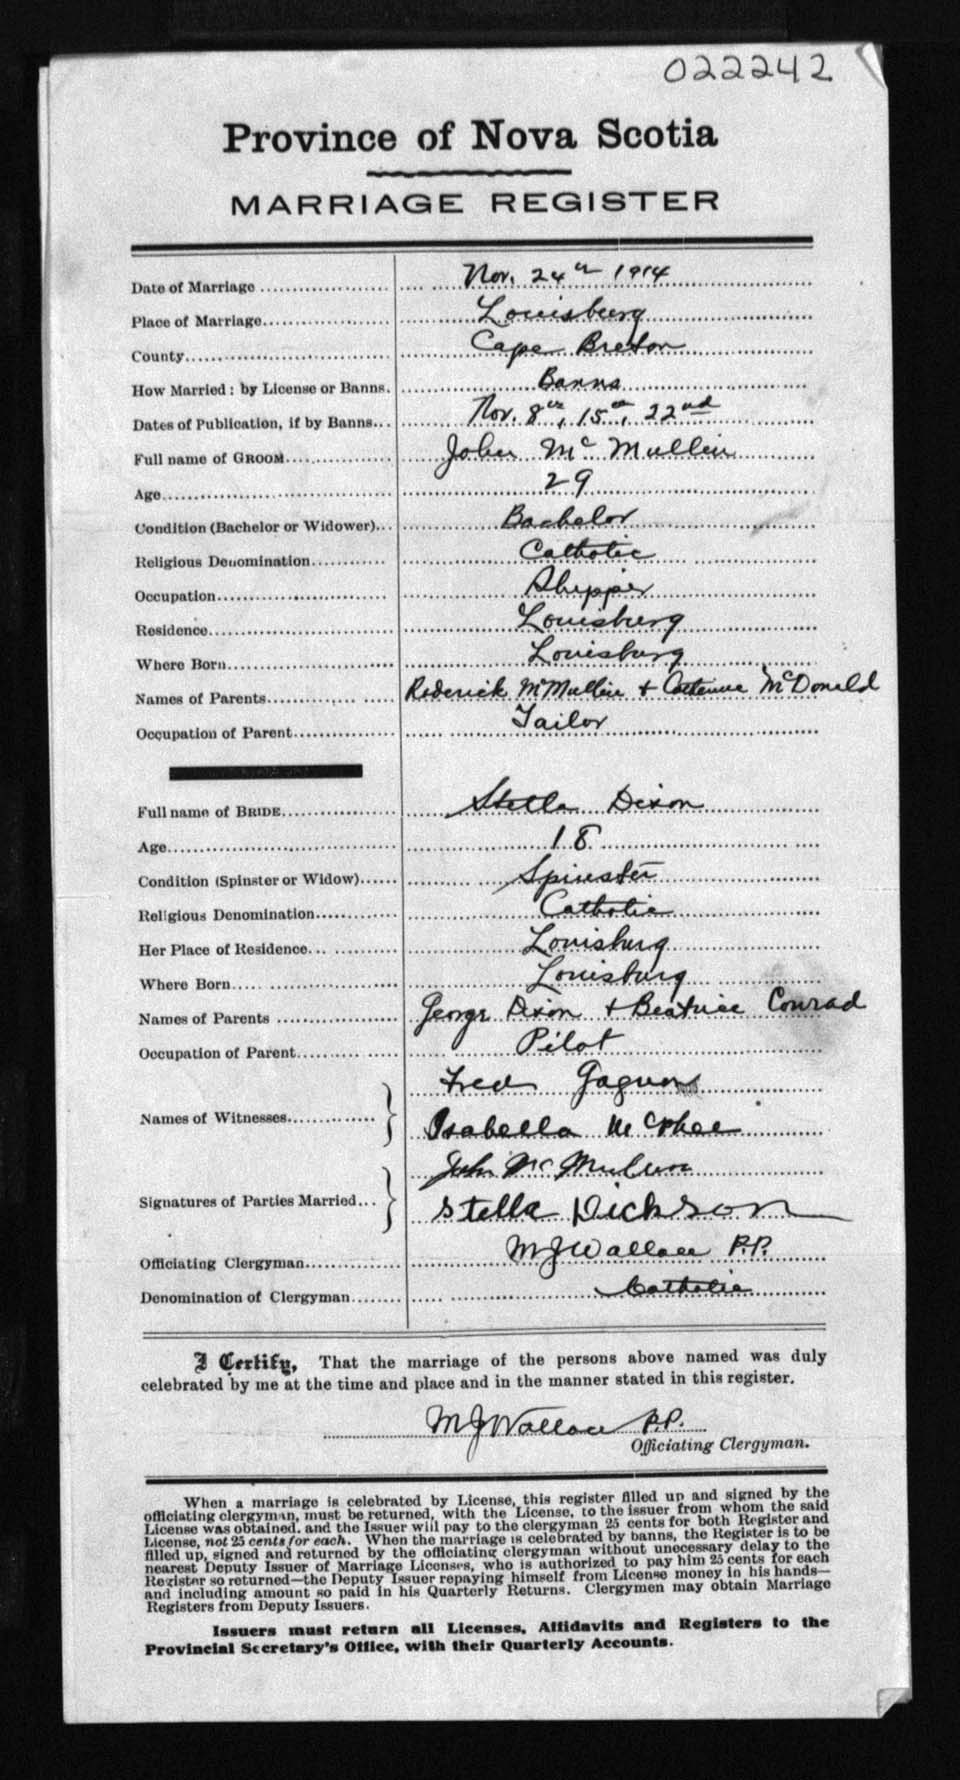 022242
Province of Nova Scotia
MARRIAGE REGISTER
Date of Marriage Nov. 24th 1914
Place of Marriage Louisburg
County Cape Breton
How Married: by License or Banns. Banns
Dates of Publication, if by Banns Nov. 8th, 15th, 22nd
Full name of GROOM John McMullin
Age 29
Condition (Bachelor or Widower) Bachelor
Religious Denomination Catholic
Occupation Shipper
Residence Louisburg
Where Born Louisburg
Names of Parents Roderick McMullin + Catherine McDonald
Occupation of Parent Tailor
Full name of BRIDE Stella Dixon
Age 18
Condition (Spinster or Widow) Spinster
Religious Denomination Catholic
Her Place of Residence Louisburg
Where Born Louisburg
Names of Parents George Dixon + Beatrice Conrad
Occupation of Parent Pilot
Fred Gagnon
Names of Witnesses
Isabella McPhee
John McMullin
Signatures of Parties Married
Stella Dickson
Officiating Clergyman MJ Wallace P.P.
Denomination of Clergyman Catholic
I Certify, That the marriage of the persons above named was duly
celebrated by me at the time and place and in the manner stated in this register.
MJ Wallace P.P.
Officiating Clergyman.
When a marriage is celebrated by License, this register filled up and signed by the
officiating clergyman, must be returned, with the License, to the issuer from whom the said
License was obtained, and the Issuer will pay to the clergyman 25 cents for both Register and
License, not 25 cents for each. When the marriage is celebrated by banns, the Register is to be
filled up, signed and returned by the officiating clergyman without unecessary delay to the
nearest Deputy Issuer of Marriage Licenses, who is authorized to pay him 25 cents for each
Register so returned—the Deputy Issuer repaying himself from License money in his hands—
and including amount so paid in his Quarterly Returns. Clergymen may obtain Marriage
Registers from Deputy Issuers.
Issuers must return all Licenses, Affidavits and Registers to the
Provincial Secretary's Office, with their Quarterly Accounts.